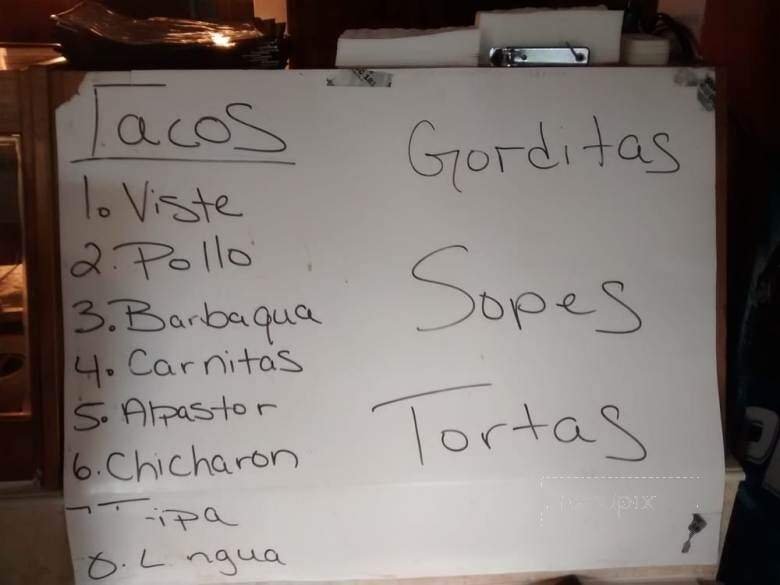 Tacos
1. Viste
2. Pollo
3. Barbaqua
4. Carnitas
5. Alpastor
6. Chicharon
7. Tripa
8. Lengua
Gorditas
Sopes
Tortas